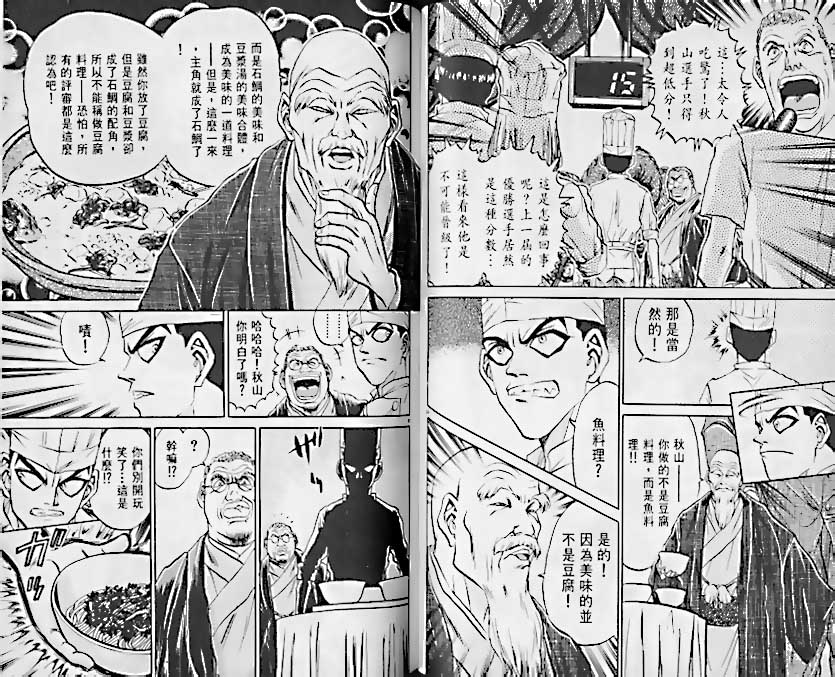 這…太令人
吃驚了！秋
山選手只得
到超低分！
15
這是怎麼回事
呢？上一屆的
優勝選手居然
是這種分數…
這樣看來他是
不可能晉級了！
那是當
然的！
秋山——
你做的不是豆腐
料理，而是魚料
理!!
魚料理？
是的！
因為美味的並
不是豆腐！
而是石鯛的美味和
豆漿湯的美味合體，
成為美味的一道料理
——但是，這麼一來
，主角就成了石鯛了
！
雖然你放了豆腐，
但是豆腐和豆漿卻
成了石鯛的配角，
所以不能稱做豆腐
料理——恐怕，所
有的評審都是這麼
認為吧！
………
哈哈哈！秋山
你明白了嗎？
嘖！
？
幹嘛!?
你們別開玩
笑了…這是
什麼!?
ガガ